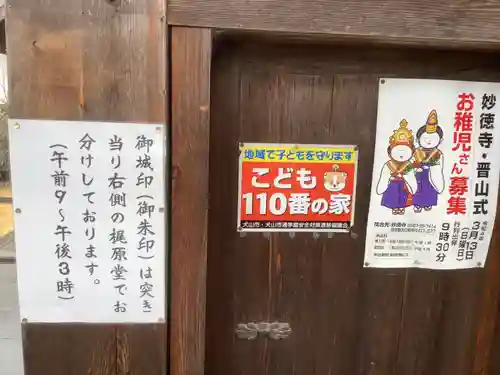 御城印（御朱印）は突き
当り右側の梶原堂でお
分けしております。
（午前９～午後３時）
地域で子どもを守ります
こども
110番の家
犬山市・犬山市通学路安全対策連絡協議会
妙徳寺・晋山式
お稚児さん募集
3月13日
（日曜日）
行列出発
9時30分